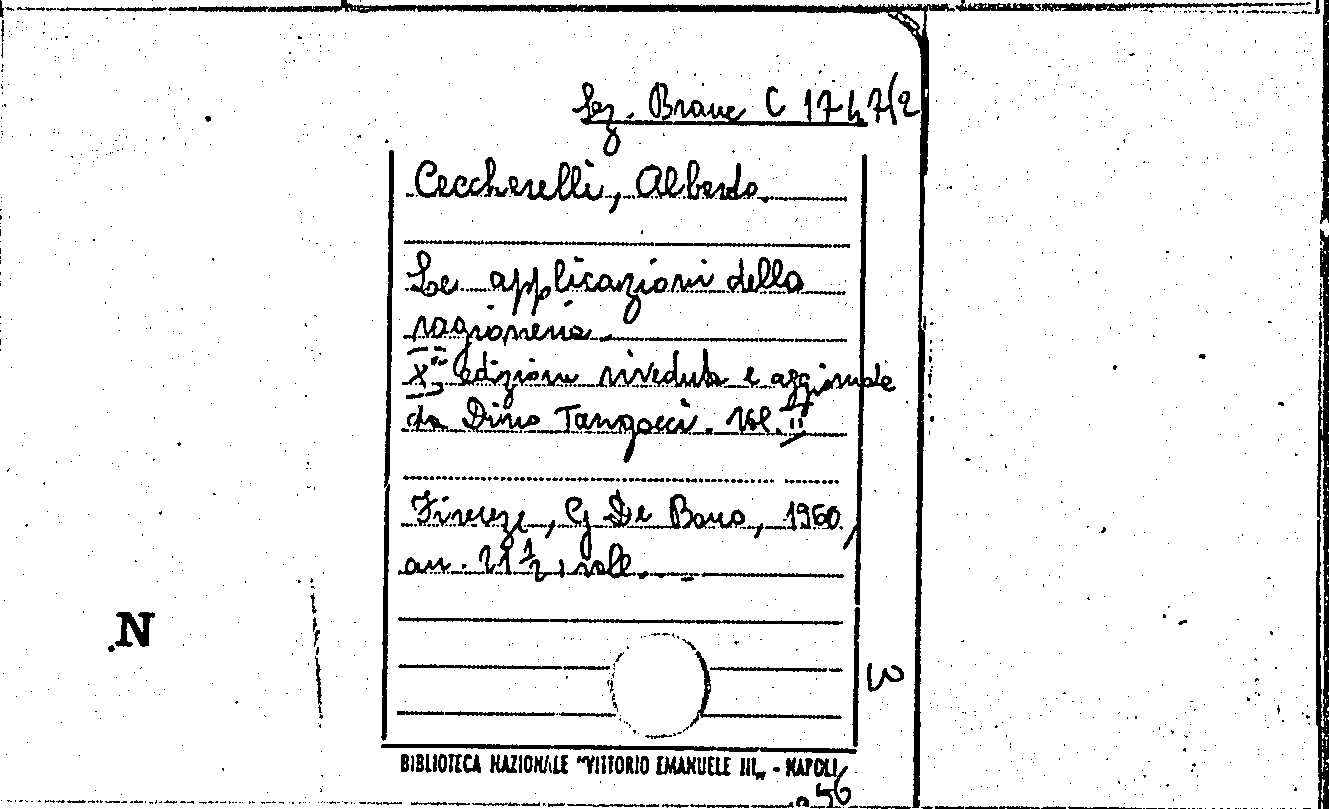 Sez. Branc C 1747(2
Ceccherelli, Alberto.
Le applicazioni della
ragioneria.
Xª edizione riveduta e aggiornata
da Dino Tangocci. Vol. II
Firenze, G De Bono, 1960,
cm. 21 1/2, voll.
N
3
BIBLIOTECA NAZIONALE "VITTORIO EMANUELE III„ - NAPOLI
56